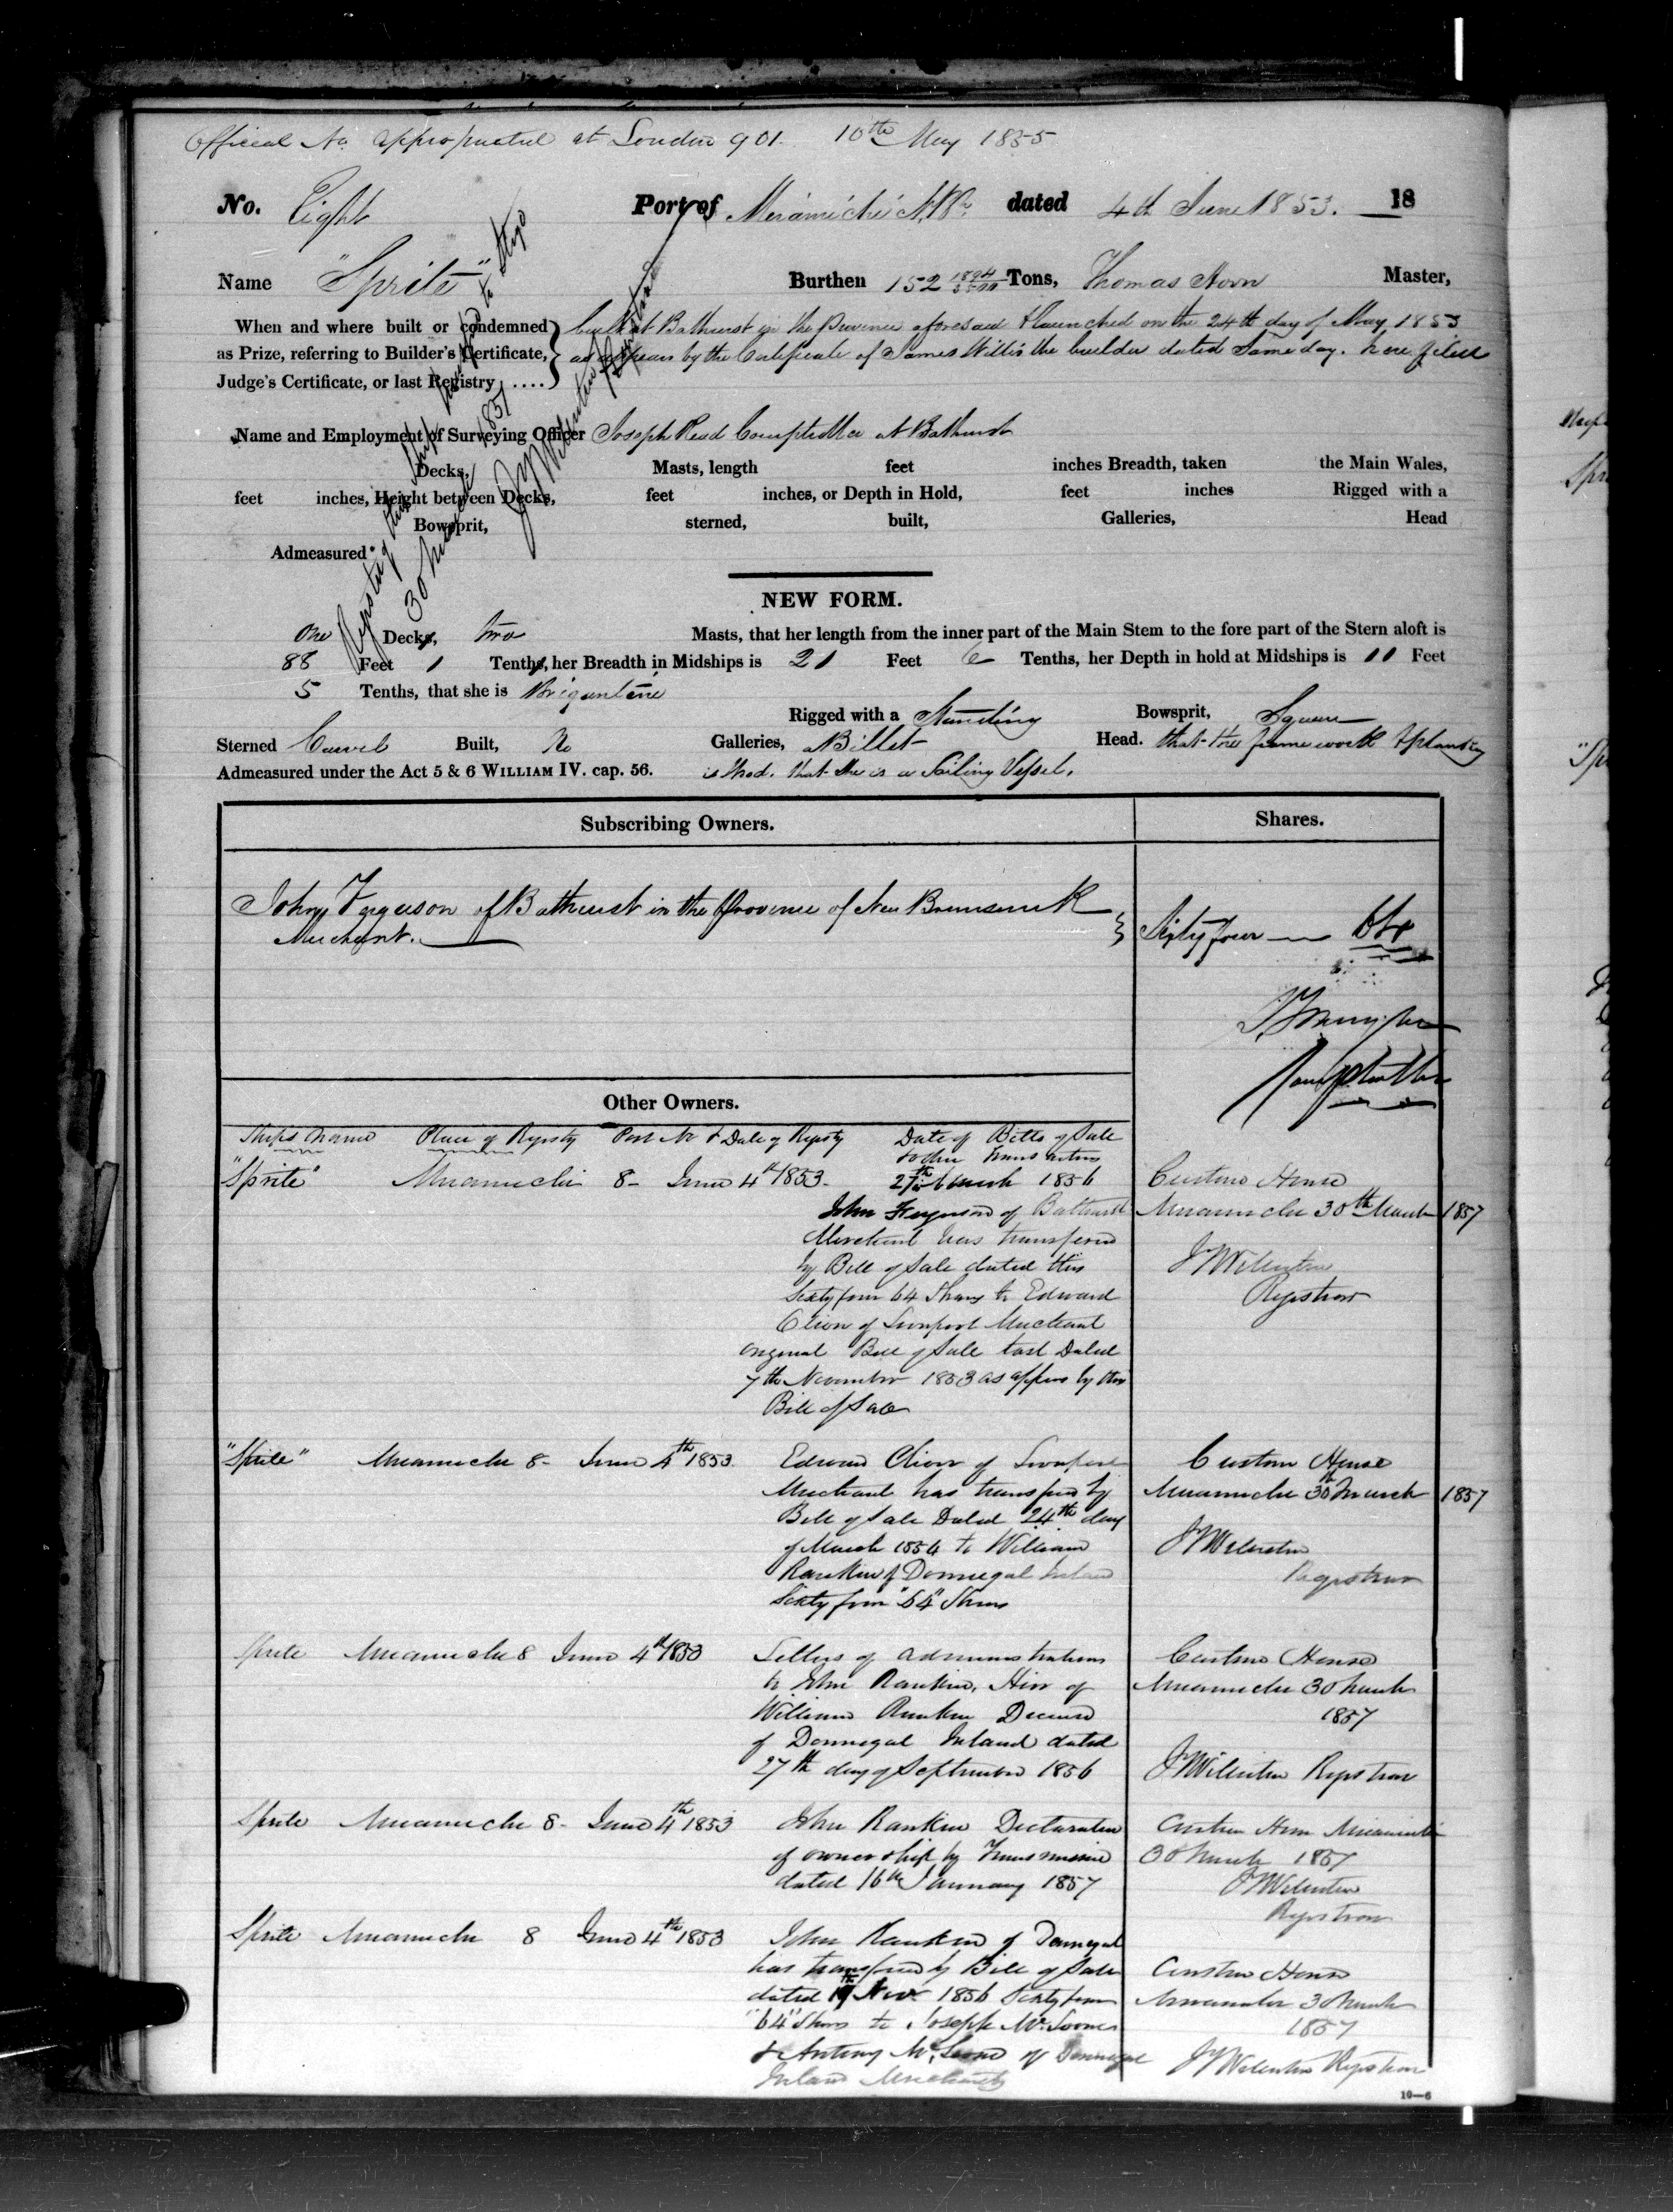 Official No. appropriated at London 901. 10th May 1855
No. Eight Port of Miramichi N.B. dated 4th June 1853. 18
Name "Sprite" Burthen 152 1894/3500 Tons, Thomas Master,
When and where built or condemned built at Bathurst in the Province aforesaid & launched on the 24th day of May, 1853
as Prize, referring to Builder's Certificate, as appears by the Certificate of James Willis the builder dated Same day. here filed
Judge's Certificate, or last Registry ....
Name and Employment of Surveying Officer Joseph Read Comptroller at Bathurst
Decks, Masts, length feet inches Breadth, taken the Main Wales,
feet inches, Height between Decks, feet inches, or Depth in Hold, feet inches Rigged with a
Bowsprit, sterned, built, Galleries, Head
Admeasured
Registry this Ship transferred to Sligo
30 March 1857
Registrar
NEW FORM.
One Decks, two Masts, that her length from the inner part of the Main Stem to the fore part of the Stern aloft is
88 Feet 1 Tenths, her Breadth in Midships is 21 Feet 6 Tenths, her Depth in hold at Midships is 11 Feet
5 Tenths, that she is Brigantine
Rigged with a Standing Bowsprit, Square
Sterned Carvel Built, No Galleries, Billet Head. that the framework & planking
Admeasured under the Act 5 & 6 WILLIAM IV. cap. 56. is Wood. that she is a Sailing Vessel.
Subscribing Owners. Shares.
John Ferguson of Bathurst in the Province of New Brunswick
Merchant. Sixty four 64
Comptroller
Other Owners.
Ships Name Place of Registry Port No & Date of Registry Date of Bills of Sale
& other transactions
"Sprite" Miramichi 8 - June 4th 1853 - 27th March 1856 Custom House
John Ferguson of Bathurst Miramichi 30th March 1857
Merchant has transfered
by Bill of Sale dated this
Sixty four 64 Shares to Edward Registrar
of Liverpool Merchant
original Bill of Sale lost Dated
7th November 1853 as appears by this
Bill of Sale
"Sprite" Miramichi 8 - June 4th 1853. Edward of Liverpool Custom House
Merchant has transferred by Miramichi 30th March 1857
Bill of Sale Dated 24th day
of March 1854 to William
Rankin of Donnegal Ireland Registrar
Sixty four "64" Shares
Sprite Miramichi 8 June 4th 1853 Letters of administration Custom House
to John Rankin, Heir of Miramichi 30 March
William Rankin Deceased 1857
of Donnegal Ireland dated
27th day of September 1856 Registrar
Sprite Miramichi 8 - June 4th 1853 John Rankin Declaration Custom House Miramichi
of ownership by Transmission 30 March 1857
dated 16th January 1857
Registrar
Sprite Miramichi 8 June 4th 1853 John Rankin of Donnegal
has transferred by Bill of Sale Custom House
dated Nov. 1856 Sixty four Miramichi 30 March
"64" Shares to Joseph 1857
& Antony of Donnegal Registrar
Ireland Merchants
10—6